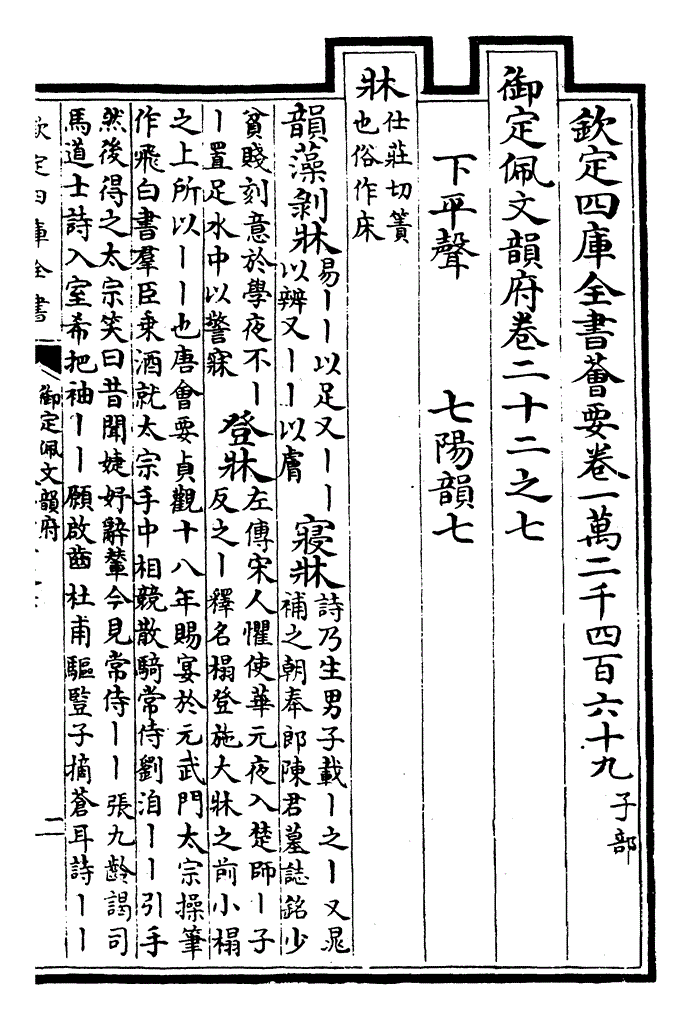 欽定四庫全書薈要卷一萬二千四百六十九 子部
御定佩文韻府卷二十二之七
下平聲 七陽韻七
牀 仕莊切簀
也俗作床
韻藻剝牀 易丨丨以足又丨丨
以辨又丨丨以膚
寢牀 詩乃生男子載丨之丨又晁
補之朝奉郎陳君墓誌銘少
貧賤刻意於學夜不丨
丨置足水中以警寐
登牀 左傳宋人懼使華元夜入楚師丨子
反之丨釋名榻登施大牀之前小榻
之上所以丨丨也唐會要貞觀十八年賜宴於元武門太宗操筆
作飛白書羣臣乗酒就太宗手中相競散騎常侍劉洎丨丨引手
然後得之太宗笑曰昔聞婕妤辭輦今見常侍丨丨張九齡謁司
馬道士詩入室希把袖丨丨願啟齒杜甫驅豎子摘蒼耳詩丨丨
欽定四庫全書
御定佩文韻府
二